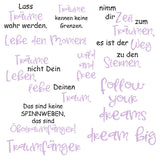 Lass
Träume
wahr werden.
Träume
kennen keine
Grenzen.
nimm
dir Zeit
zum
Träumen,
Lebe den Moment
es ist der Weg
zu den
Sternen.
wild
and
free
Träume
nicht Dein
Leben,
lebe Deinen
Traum
Das sind keine
SPINNWEBEN,
das sind
Traumfänger!
Traumfänger
follow
your
dreams
dream big